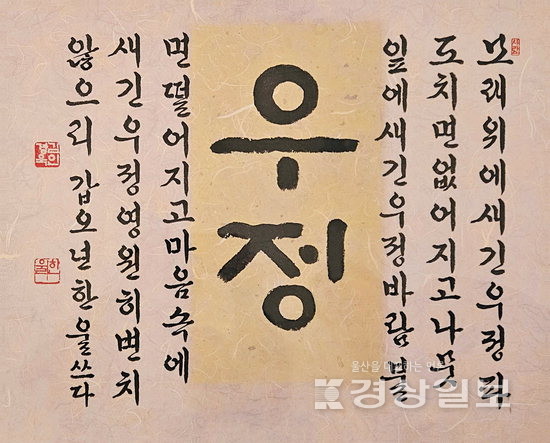 모래위에새긴우정파
도치면없어지고나뭇
잎에새긴우정바람불
우정
면떨어지고마음속에
새긴우정영원히변치
않으리 갑오년한울쓰다
한울
울산을
경상일보